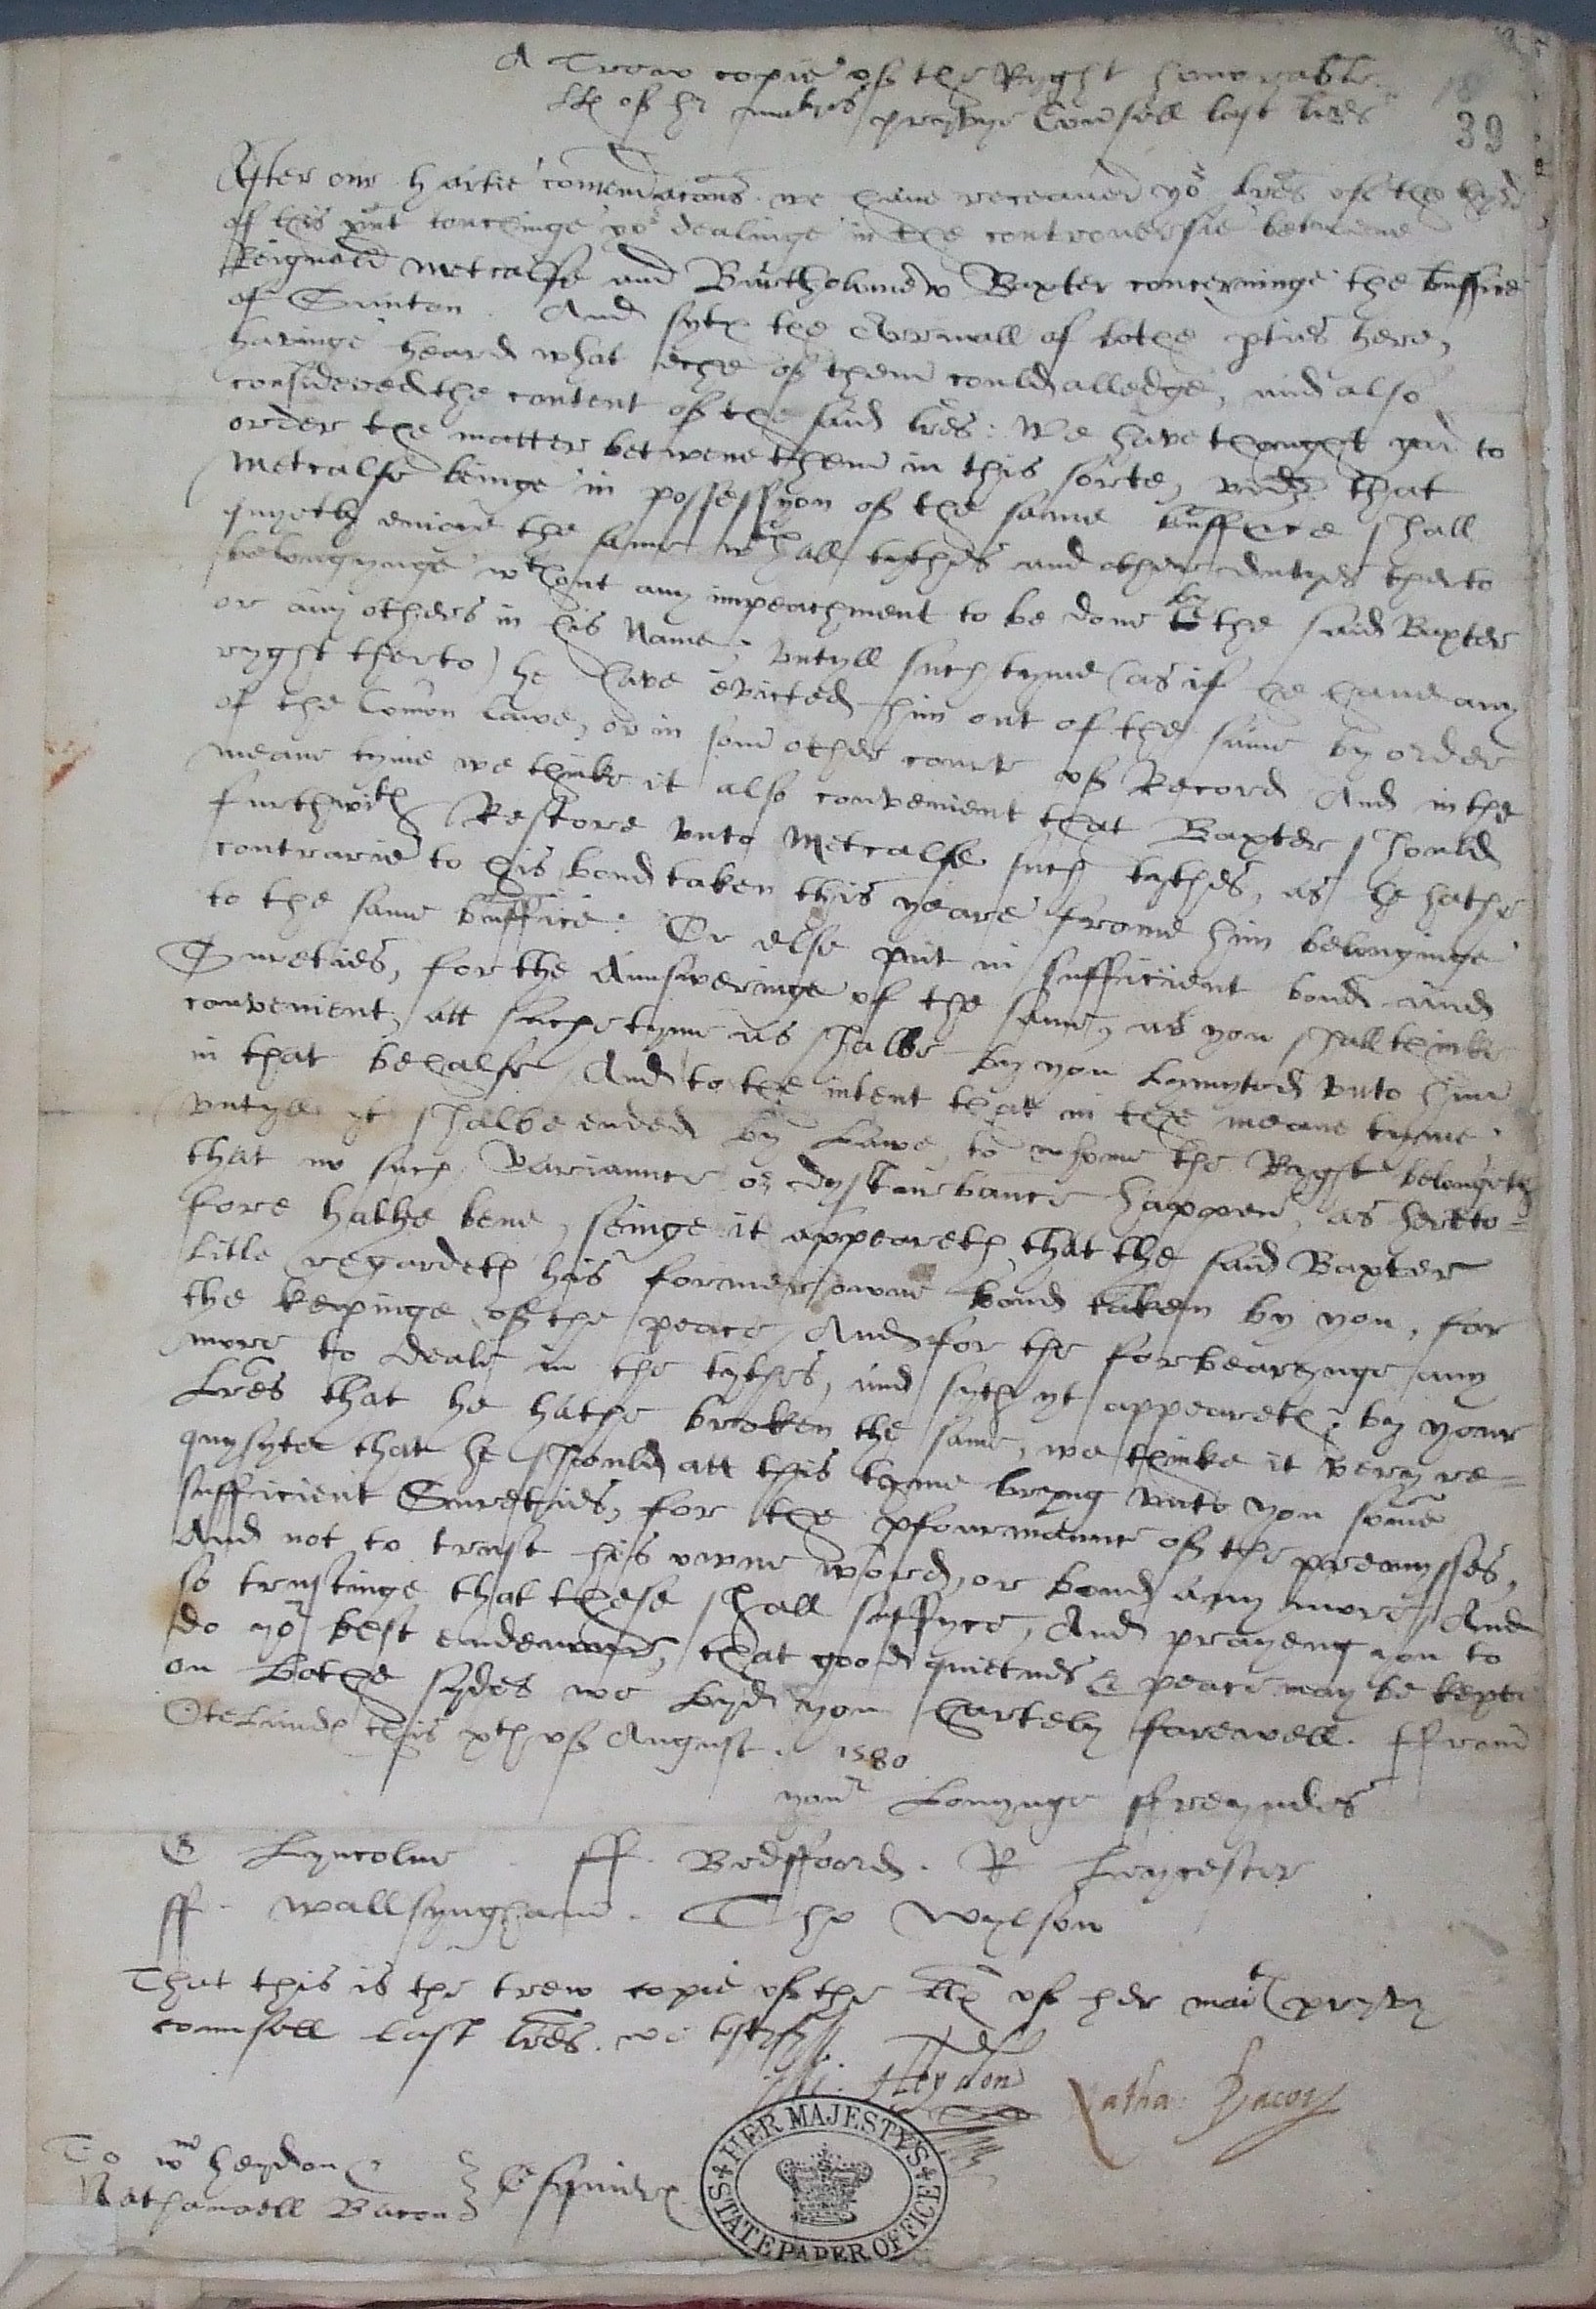 A Trew copie of the Ryght honorable
LL of hir maties pryvye Counsell last lres
39
After our hartie comendacons. we have receaved yor lres of the
of this pnt touchinge yor dealinge in the controversie betwene
Reignold Metcalfe and Bartholomew Baxter concerninge the benffice
of Gunton. And syth the Arrivall of bothe pties here,
havinge heard what eche of them could alledge, and also
considered the content of the said lres: We have thought good to
order the matter betwene them in this sorte, vidz that
Metcalfe beinge in possessyon of the same benffice shall
quyetly enioye the same wth all tythes and other dutyes therto
belongynge wthout any impeachment to be done by the said Baxter
or any others in his Name, vntyll such tyme (as if he have any
ryght therto) he have evicted him out of the same by order
of the Comon lawe, or in som other courte of Record And in the
meane tyme we thinke it also convenient that Baxter should
furthwith Restore vnto Metcalfe such tythes, as he hathe
contrarie to his bond taken this yeare frome him belonginge
to the same benffice: Or else put in sufficient bond and
Sureties, for the Aunsweringe of the same, as you shall thinke
convenient, att suche tyme as shalbe by you Lymyted vnto him
in that behalfe And to the intent that in the meane tyme
vntyll yt shalbe ended by Lawe, to whome the Ryght belongeth
that no such Variaunce or dysturbance happen, as hereto=
fore hathe bene, seinge it appeareth that the said Baxter
litle regardeth his former owne bond taken by you, for
the kepinge of the peace, And for the forbearynge any
more to deale in the tythes, and syth yt appeareth by your
Lres that he hathe broken the same, we thinke it very re=
quysyte that he should att this tyme bryng vnto you some
sufficient Sureties, for the pfourmaunce of the premysses,
And not to trust his owne word, or bond any more And
so trustinge that these shall suffyce, And prayeng you to
do yor best endevour, that good quietnes & peace may be kepte
on bothe sydes we byd you hartely farewell. ffrom
Otelands this xth of August. 1580
your Lovynge ffreyndes
E Lyncolne . ff. Bedfford. R Leycester
ff. Wallsyngham. Tho Wylson
That this is the trew copie of the LL of her maties pryvy
counsell last lres. we testyfy
Wi: Heydon Natha: Bacon
To Wm heydon
Nathanaell Bacon } Esquiers
HER MAJESTY'S STATE PAPER OFFICE